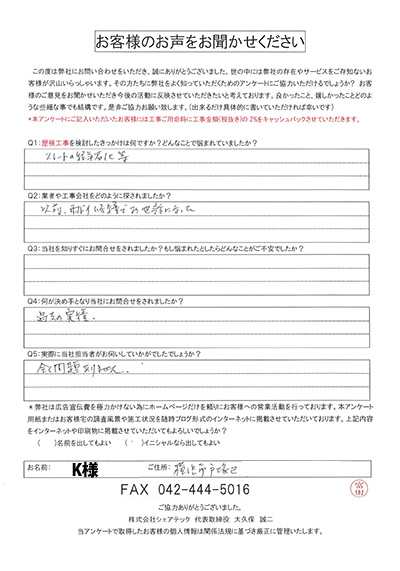 お客様のお声をお聞かせください
この度は弊社にお問い合わせをいただき、誠にありがとうございました。世の中には弊社の存在やサービスをご存知ないお
客様が沢山いらっしゃいます。その方たちに弊社をよく知っていただくためのアンケートにご協力いただけるでしょうか? お客
様のご意見をお聞かせいただき今後の活動に反映させていただきたいと考えております。良かったこと、嬉しかったことどのよ
うな些細な事でも結構です。是非ご協力お願い致します。(出来るだけ具体的に書いていただければ幸いです)
*本アンケートにご記入いただいたお客様には工事ご用命時に工事金額(税抜き)の2%をキャッシュバックさせていただきます。
Q1:屋根工事を検討したきっかけは何ですか?どんなことで悩まれていましたか?
スレートの経年劣化 等
Q2:業者や工事会社をどのように探されましたか?
以前、
お世話になった
Q3:当社を知りすぐにお問合せをされましたか?もし悩まれたとしたらどんなことがご不安でしたか?
Q4:何が決め手となり当社にお問合せをされましたか?
過去の実績。
Q5:実際に当社担当者がお伺いしていかがでしたでしょうか?
全く問題ありません。
*弊社は広告宣伝費を極力かけない為にホームページだけを頼りにお客様への営業活動を行っております。本アンケート
用紙またはお客様宅の調査風景や施工状況を随時ブログ形式のインターネットに掲載させていただいております。上記内容
をインターネットや印刷物に掲載させていただいてもよろしいでしょうか?
( )名前を出してもよい ( )イニシャルなら出してもよい
お名前: K様 ご住所: 横浜市戸塚区
FAX 042-444-5016
ご協力ありがとうございました。
株式会社シェアテック 代表取締役 大久保 誠二
当アンケートで取得したお客様の個人情報は関係法規に基づき厳正に管理いたします。